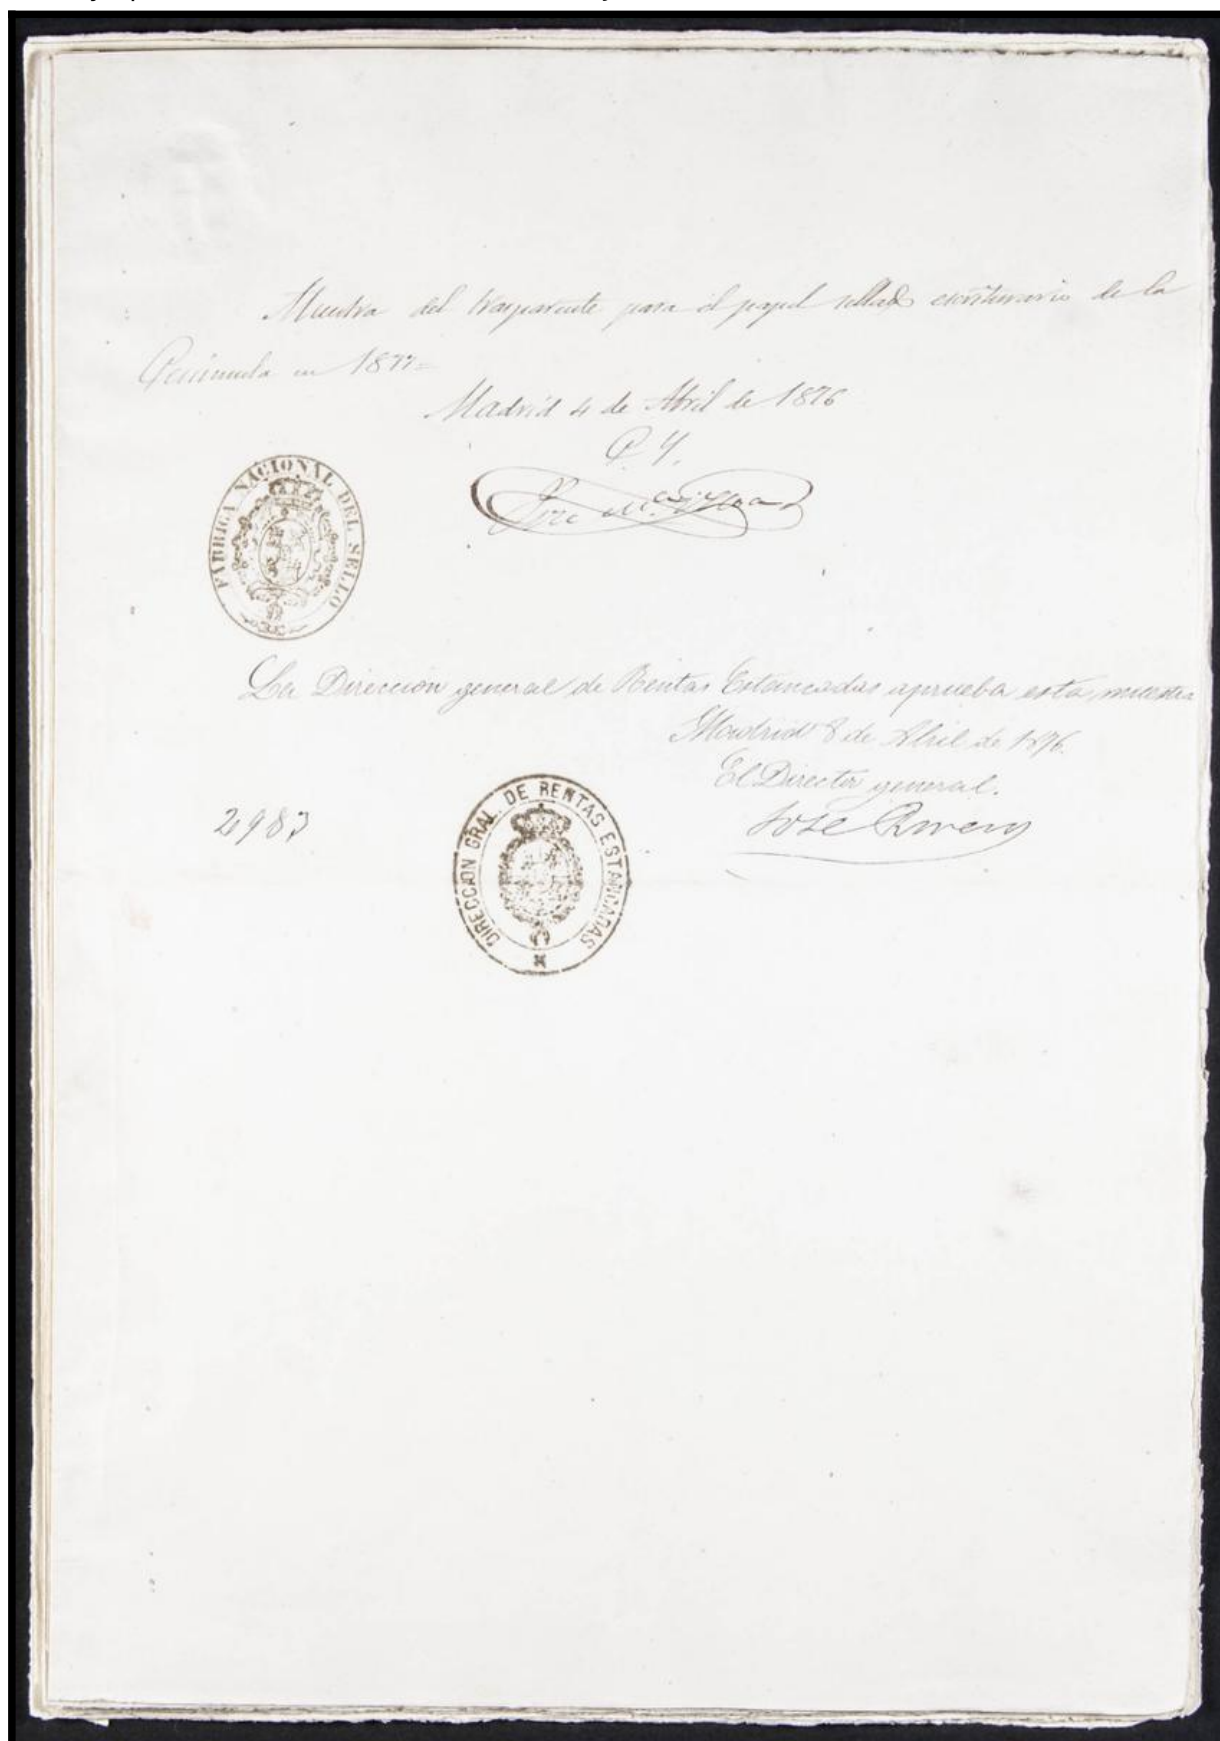 Muestra del trasparente para el papel sellado escriturario de la
Península en 1877=
Madrid 4 de Abril de 1876
P. Y.
José Mª
FÁBRICA NACIONAL DEL SELLO
La Dirección general de Rentas Estancadas aprueba esta muestra
Madrid 8 de Abril de 1876.
El Director general.
José Rivero
2983
DIRECCION GRAL. DE RENTAS ESTANCADAS